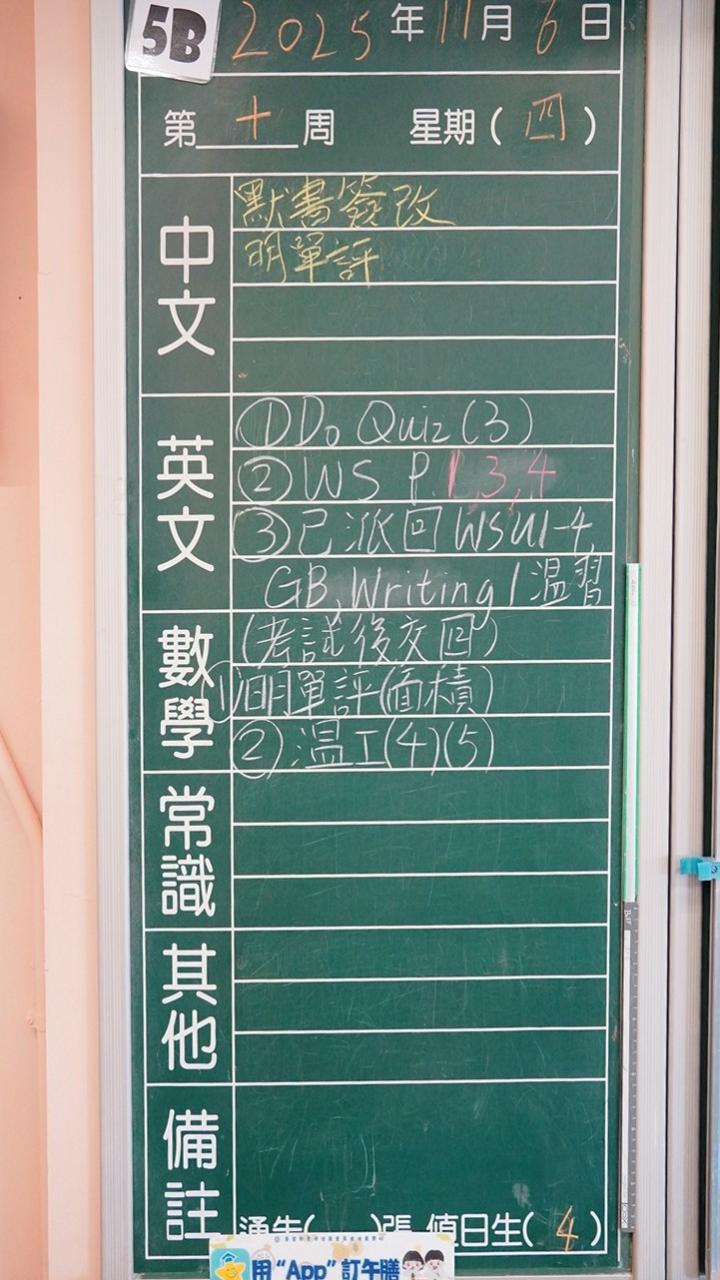 5B 2025年11月6日
第十周 星期(四)
中文
默書簽改
明單評
英文
①Do Quiz (3)
②WS P.1,3,4
③已派回 WSU1-4
GB, Writing 1 溫習
(考試後交回)
數學
①明單評(面積)
②溫工(4)(5)
常識
其他
備註
通告( )張 值日生(4)
用“App”訂午膳